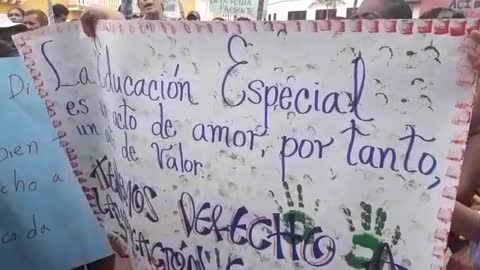 La Educación Especial
es un acto de amor, por tanto,
un acto de Valor.
TENEMOS DERECHO A
LA EDUCACIÓN
Di
bien
cho a
cada